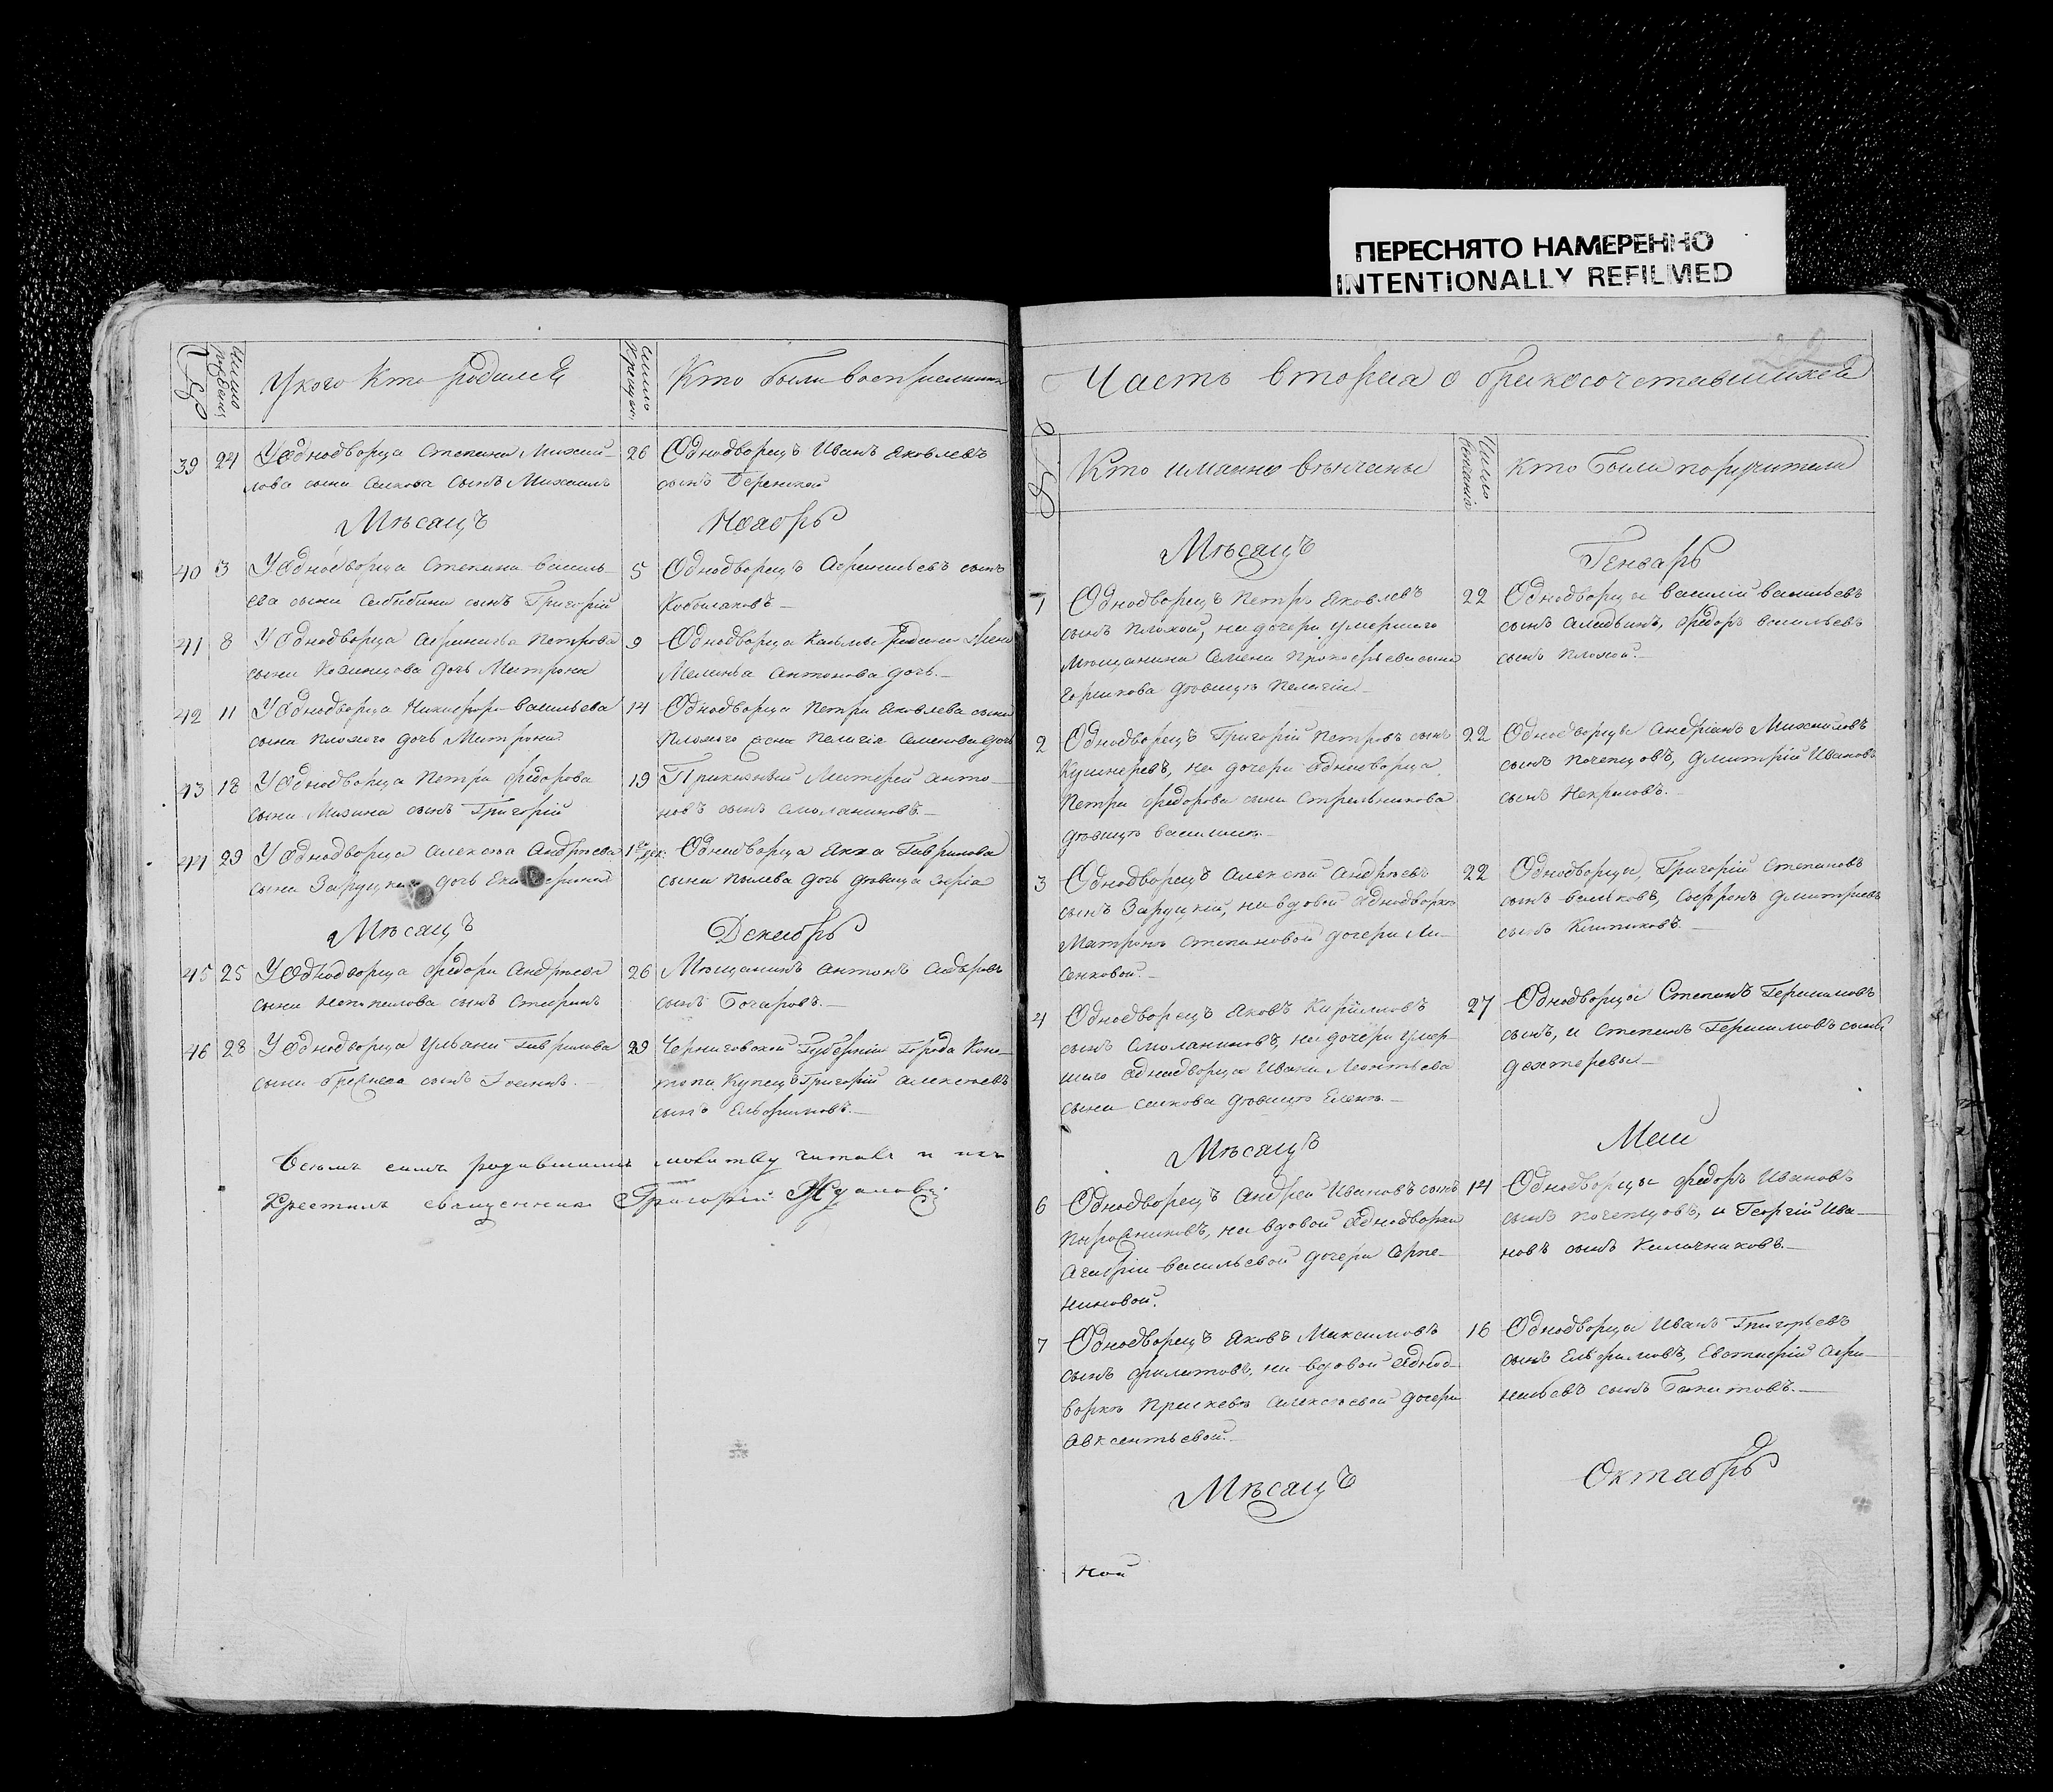 ПЕРЕСНЯТО НАМЕРЕННО
INTENTIONALLY REFILMED
№
Число рожденія
Укого Кто родился
Число крещен:
Кто были восприемники
39 24 Уоднодворца Степана Михай-
лова сына Сынъ Михаилъ
26 Однодворецъ Иванъ Яковлевъ
сынъ
Мѣсяцъ Ноябрь
40 3 Уоднодворца Степана Василь-
ева сына сынъ Григорій
5 Однодворецъ Афанасьевъ сынъ
41 8 Уоднодворца Афанасья Петрова
сына дочь Матрона
9 Однодворца
Антонова дочь.
42 11 Уоднодворца Никифора Васильева
сына Плохого дочь Матрона
14 Однодворца Петра Яковлева сына
Плохого жена Пелагія Семенова дочь
43 18 Уоднодворца Петра Федорова
сына Мизина сынъ Григорій
19 Приказный Анто-
новъ сынъ Смоляниновъ.
44 29 Уоднодворца Алексѣя Андрѣева
сына дочь Екатерина
1е дек. Однодворца Якова Гаврилова
сына Пылева дочь дѣвица Софія
Мѣсяцъ Декабрь
45 25 Уоднодворца Федора Андрѣева
сына Непопалова сынъ Стефанъ
26 Мѣщанинъ Антонъ
сынъ Бочаровъ.
46 28 Уоднодворца Ульяна Гаврилова
сына сынъ
29 Черниговской Губерніи Города Коно-
топа Купецъ Григорій Алексѣевъ
сынъ Ельфимовъ.
Всемъ симъ родившимъ молитву читалъ и
Крестилъ священникъ Григорій Ждановъ
22
Часть вторая о бракосочетавшихся
№
Кто имянно вѣнчаны
Число вѣнчанія
Кто были поручители
Мѣсяцъ Генварь
1 Однодворецъ Петръ Яковлевъ
сынъ Плохой, на дочери умершаго
Мѣщанина Семена Прокофьева сына
Горшкова дѣвицѣ Пелагіи
22 Однодворцы Василій Васильевъ
сынъ Федоръ Васильевъ
сынъ Плохой.
2 Однодворецъ Григорій Петровъ сынъ
Кушнеревъ, на дочери однодворца
Петра Федорова сына Стрельникова
дѣвицѣ Василисѣ.
22 Однодворцы Андріянъ Михайловъ
сынъ Почепцовъ, Дмитрій Ивановъ
сынъ Некрасовъ.
3 Однодворецъ Алексѣй Андрѣевъ
сынъ Заруцкій, на вдовой однодворкѣ
Матронѣ Степановой дочери Ли-
сенковой.
22 Однодворцы, Григорій Степановъ
сынъ Волковъ, Софронъ Дмитріевъ
сынъ
4 Однодворецъ Яковъ Кириловъ
сынъ Смоляниновъ, на дочери умер-
шаго однодворца Ивана Леонтьева
сына дѣвицѣ Еленѣ.
27 Однодворцы Степанъ Герасимовъ
сынъ, и Степанъ Герасимовъ сынъ
Дехтеревы
Мѣсяцъ Маи
6 Однодворецъ Андрей Ивановъ сынъ
на вдовой однодворки
Агафіи Васильевой дочери Серпе-
ниновой.
14 Однодворцы Федоръ Ивановъ
сынъ Почепцовъ, и Георгій Ива-
новъ сынъ Калачниковъ.
7 Однодворецъ Яковъ Максимовъ
сынъ Филатовъ, на вдовой однод-
воркѣ Прасковѣ Алексѣевой дочери
Авксентьевой.
16 Однодворцы Иванъ Григорьевъ
сынъ Ельфимовъ, Евстафій Афа-
насьевъ сынъ
Мѣсяцъ Октябрь
ной